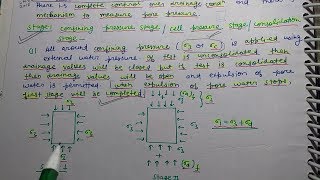 there is complete control over drainage cond and there
mechanism to measure pore pressure
Stage / confining pressure stage / cell pressure stage / consolidation
stage -
All around confining pressure (σ3 or σc) is applied using
unconsolidated then
drainage valves will be closed, but if test is consolidated
then drainage value will be open and expulsion of pore
water is permitted, when expulsion of pore water stops,
first stage will be completed.
σ3
σ3
σ3
σ3
σ3
σ1 = σ3 + σd
Stage II